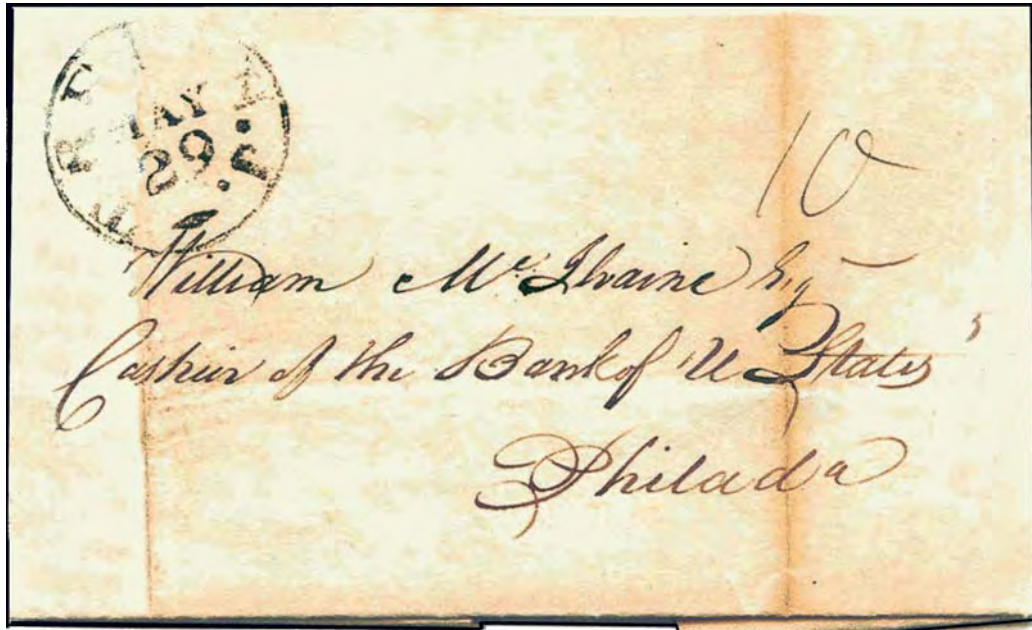 MAY
29
N.J.
10
William McIlvaine Esq
Cashier of the Bank of U States
Philada